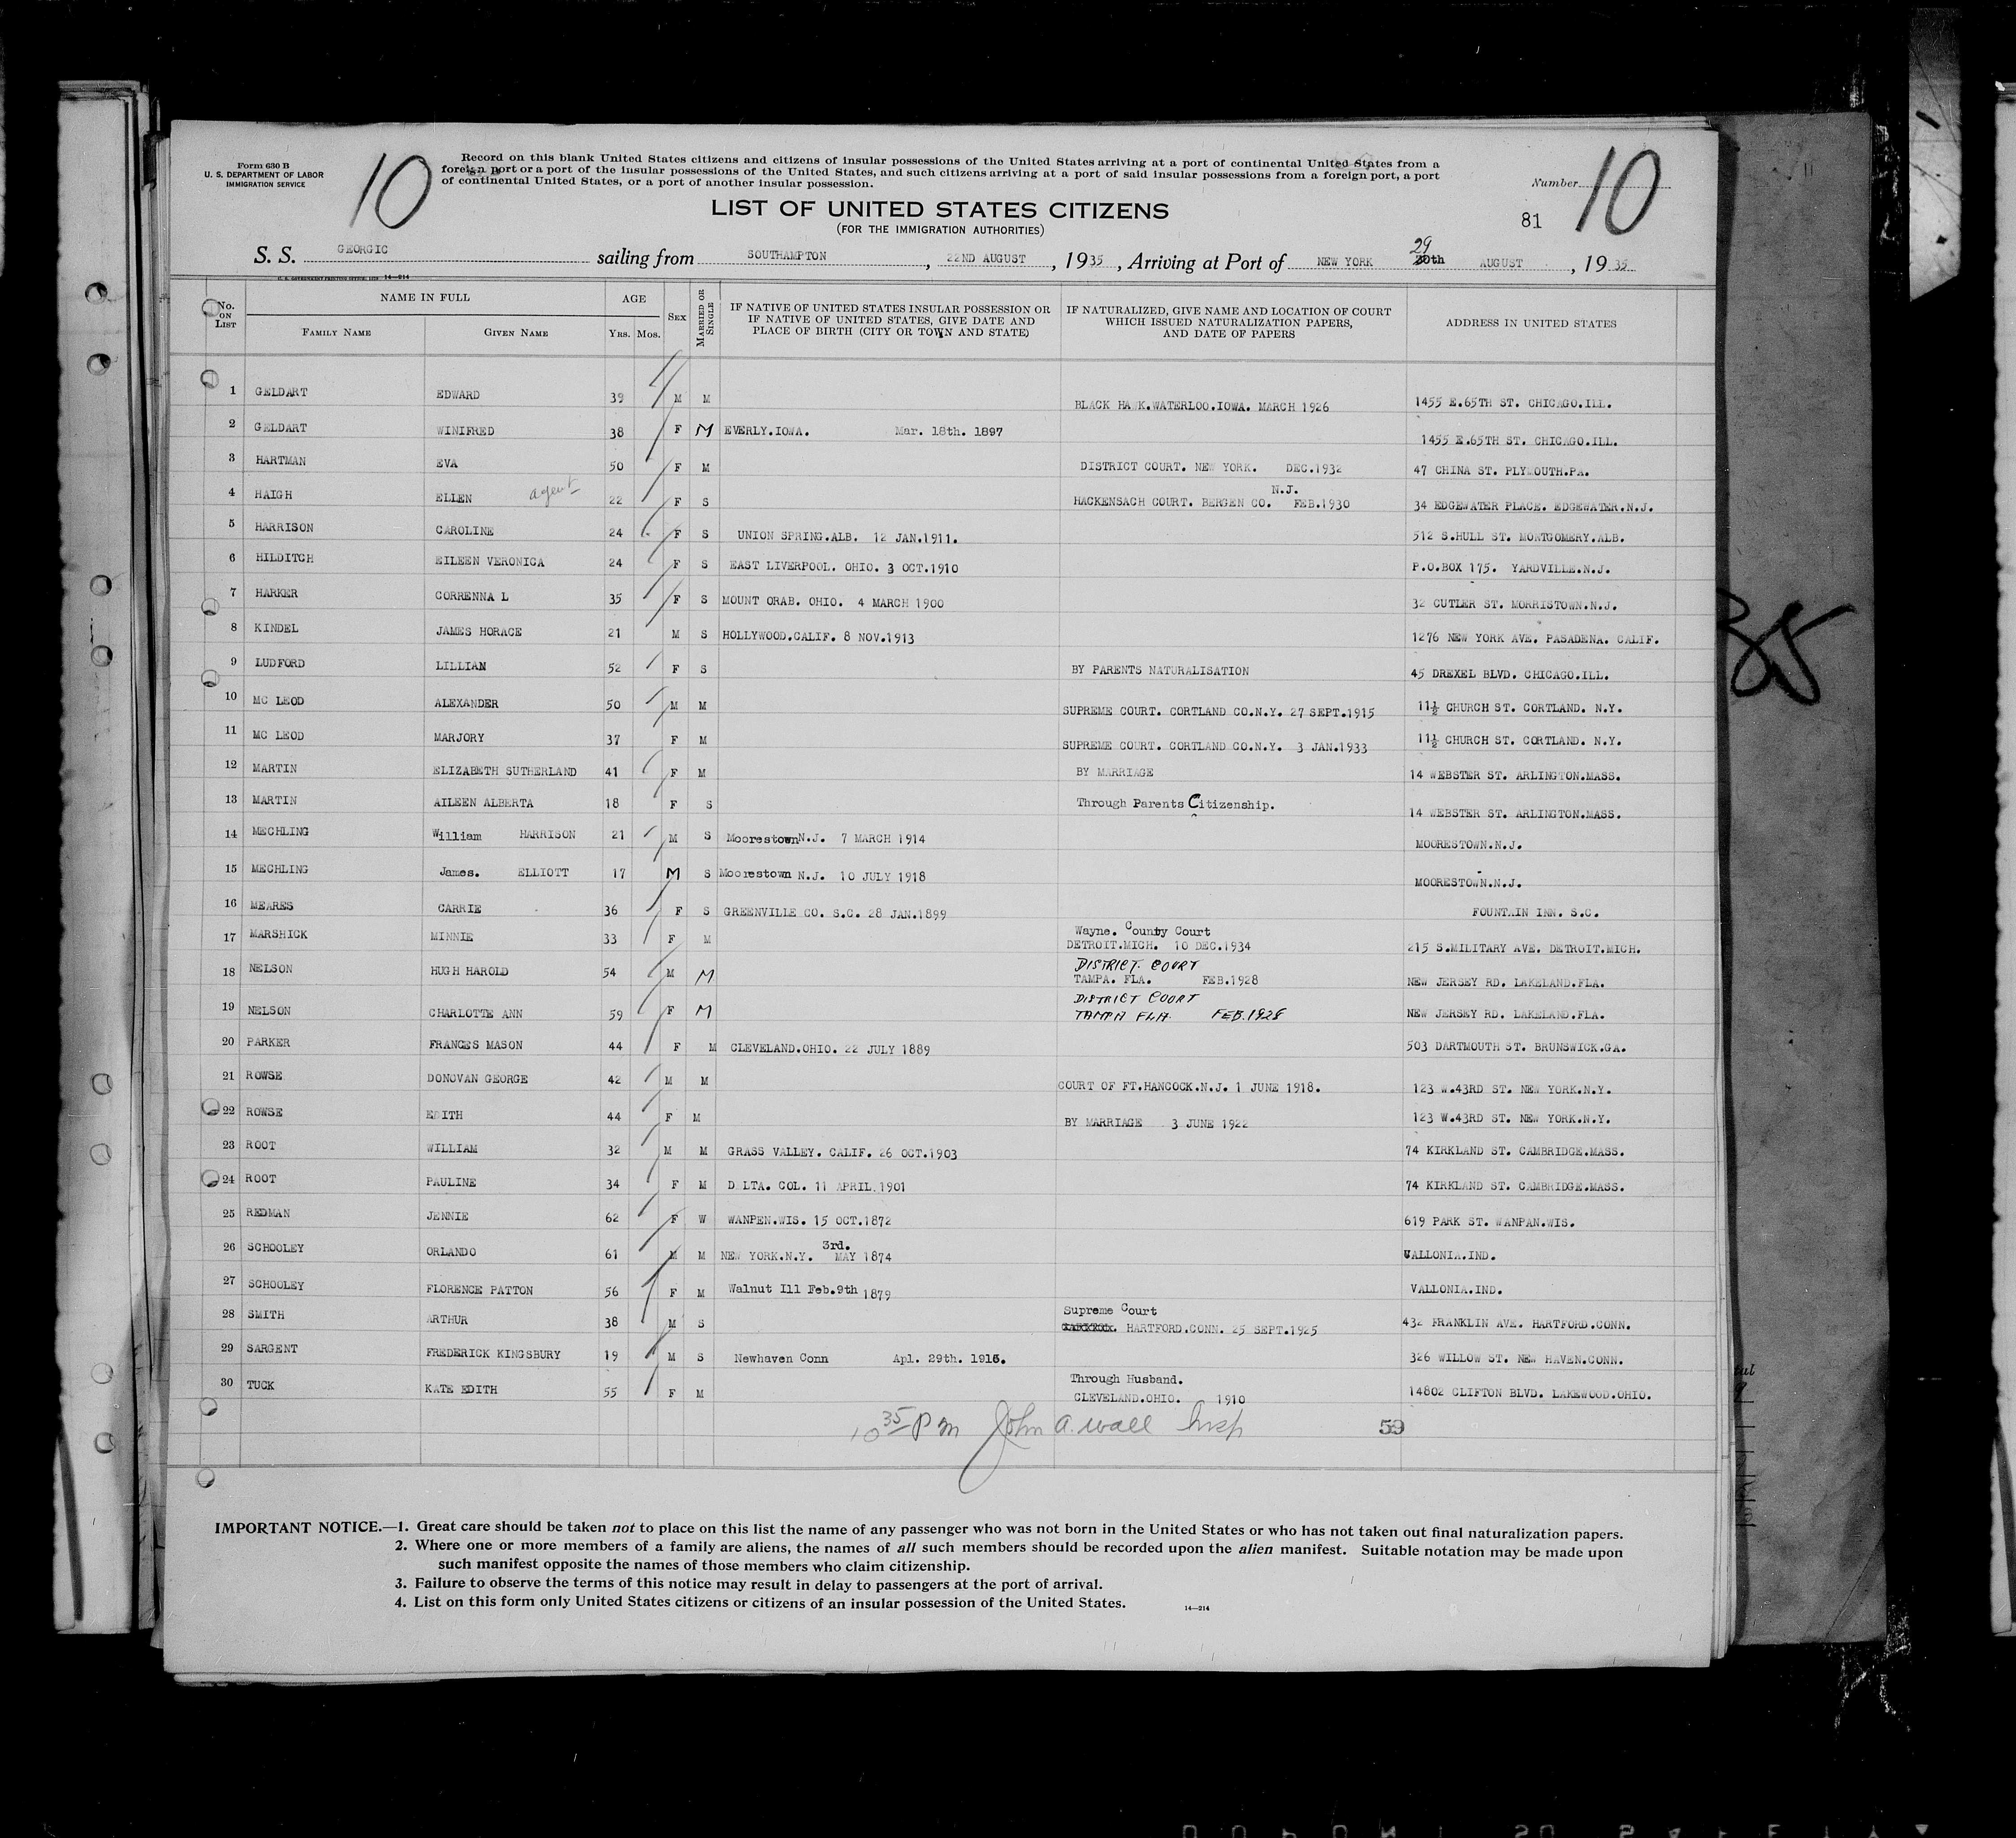 Form 630 B
U. S. DEPARTMENT OF LABOR
IMMIGRATION SERVICE
10
Record on this blank United States citizens and citizens of insular possessions of the United States arriving at a port of continental United States from a
foreign port or a port of the insular possessions of the United States, and such citizens arriving at a port of said insular possessions from a foreign port, a port
of continental United States, or a port of another insular possession.
Number 10
81
LIST OF UNITED STATES CITIZENS
(FOR THE IMMIGRATION AUTHORITIES)
S. S. GEORGIC sailing from SOUTHAMPTON, 22ND AUGUST, 1935, Arriving at Port of NEW YORK 29 AUGUST, 1935
14—914
No. ON LIST NAME IN FULL FAMILY NAME GIVEN NAME AGE YRS. MOS. SEX MARRIED OR SINGLE IF NATIVE OF UNITED STATES INSULAR POSSESSION OR IF NATIVE OF UNITED STATES, GIVE DATE AND PLACE OF BIRTH (CITY OR TOWN AND STATE) IF NATURALIZED, GIVE NAME AND LOCATION OF COURT WHICH ISSUED NATURALIZATION PAPERS, AND DATE OF PAPERS ADDRESS IN UNITED STATES
1 GELDART EDWARD 39 M M BLACK HAWK.WATERLOO.IOWA. MARCH 1926 1455 E.65TH ST. CHICAGO.ILL.
2 GELDART WINIFRED 38 F M EVERLY.IOWA. Mar. 18th. 1897 1455 E.65TH ST. CHICAGO.ILL.
3 HARTMAN EVA 50 F M DISTRICT COURT. NEW YORK. DEC.1932 47 CHINA ST. PLYMOUTH.PA.
4 HAIGH ELLEN agent 22 F S HACKENSACH COURT. BERGEN CO. N.J. FEB.1930 34 EDGEWATER PLACE. EDGEWATER.N.J.
5 HARRISON CAROLINE 24 F S UNION SPRING.ALB. 12 JAN.1911. 512 S.HULL ST. MONTGOMERY.ALB.
6 HILDITCH EILEEN VERONICA 24 F S EAST LIVERPOOL. OHIO. 3 OCT.1910 P.O.BOX 175. YARDVILLE.N.J.
7 HARKER CORRENNA L 35 F S MOUNT ORAB. OHIO. 4 MARCH 1900 32 CUTLER ST. MORRISTOWN.N.J.
8 KINDEL JAMES HORACE 21 M S HOLLYWOOD.CALIF. 8 NOV.1913 1276 NEW YORK AVE. PASADENA. CALIF.
9 LUDFORD LILLIAN 52 F S BY PARENTS NATURALISATION 45 DREXEL BLVD. CHICAGO.ILL.
10 MC LEOD ALEXANDER 50 M M SUPREME COURT. CORTLAND CO.N.Y. 27 SEPT.1915 11½ CHURCH ST. CORTLAND. N.Y.
11 MC LEOD MARJORY 37 F M SUPREME COURT. CORTLAND CO.N.Y. 3 JAN.1933 11½ CHURCH ST. CORTLAND. N.Y.
12 MARTIN ELIZABETH SUTHERLAND 41 F M BY MARRIAGE 14 WEBSTER ST. ARLINGTON.MASS.
13 MARTIN AILEEN ALBERTA 18 F S Through Parents Citizenship. 14 WEBSTER ST. ARLINGTON.MASS.
14 MECHLING William HARRISON 21 M S Moorestown N.J. 7 MARCH 1914 MOORESTOWN.N.J.
15 MECHLING James. ELLIOTT 17 M S Moorestown N.J. 10 JULY 1918 MOORESTOWN.N.J.
16 MEARES CARRIE 36 F S GREENVILLE CO. S.C. 28 JAN.1899 FOUNTAIN INN. S.C.
17 MARSHICK MINNIE 33 F M Wayne. County Court DETROIT.MICH. 10 DEC.1934 215 S.MILITARY AVE. DETROIT.MICH.
18 NELSON HUGH HAROLD 54 M M DISTRICT. COURT TAMPA. FLA. FEB.1928 NEW JERSEY RD. LAKELAND.FLA.
19 NELSON CHARLOTTE ANN 59 F M DISTRICT COURT TAMPA FLA. FEB.1928 NEW JERSEY RD. LAKELAND.FLA.
20 PARKER FRANCES MASON 44 F M CLEVELAND.OHIO. 22 JULY 1889 503 DARTMOUTH ST. BRUNSWICK.GA.
21 ROWSE DONOVAN GEORGE 42 M M COURT OF FT.HANCOCK.N.J. 1 JUNE 1918. 123 W.43RD ST. NEW YORK.N.Y.
22 ROWSE EDITH 44 F M BY MARRIAGE 3 JUNE 1922 123 W.43RD ST. NEW YORK.N.Y.
23 ROOT WILLIAM 32 M M GRASS VALLEY. CALIF. 26 OCT.1903 74 KIRKLAND ST. CAMBRIDGE.MASS.
24 ROOT PAULINE 34 F M DELTA. COL. 11 APRIL.1901 74 KIRKLAND ST. CAMBRIDGE.MASS.
25 REDMAN JENNIE 62 F W WANPEN.WIS. 15 OCT.1872 619 PARK ST. WANPAN.WIS.
26 SCHOOLEY ORLANDO 61 M M NEW YORK.N.Y. 3rd. MAY 1874 VALLONIA.IND.
27 SCHOOLEY FLORENCE PATTON 56 F M Walnut Ill Feb.9th 1879 VALLONIA.IND.
28 SMITH ARTHUR 38 M S Supreme Court HARTFORD.CONN. 25 SEPT.1925 432 FRANKLIN AVE. HARTFORD.CONN.
29 SARGENT FREDERICK KINGSBURY 19 M S Newhaven Conn Apl. 29th. 1916. 326 WILLOW ST. NEW HAVEN.CONN.
30 TUCK KATE EDITH 55 F M Through Husband. CLEVELAND.OHIO. 1910 14802 CLIFTON BLVD. LAKEWOOD.OHIO.
10 35 PM John A. Wall Insp 59
IMPORTANT NOTICE.—1. Great care should be taken not to place on this list the name of any passenger who was not born in the United States or who has not taken out final naturalization papers.
2. Where one or more members of a family are aliens, the names of all such members should be recorded upon the alien manifest. Suitable notation may be made upon
such manifest opposite the names of those members who claim citizenship.
3. Failure to observe the terms of this notice may result in delay to passengers at the port of arrival.
4. List on this form only United States citizens or citizens of an insular possession of the United States.
14—914